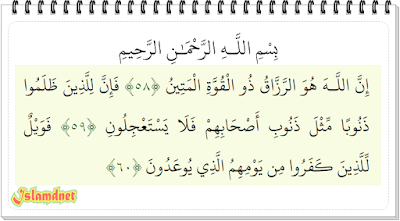 بِسْمِ اللَّـهِ الرَّحْمَـٰنِ الرَّحِيمِ
إِنَّ اللَّـهَ هُوَ الرَّزَّاقُ ذُو الْقُوَّةِ الْمَتِينُ ﴿٥٨﴾ فَإِنَّ لِلَّذِينَ ظَلَمُوا
ذَنُوبًا مِّثْلَ ذَنُوبِ أَصْحَابِهِمْ فَلَا يَسْتَعْجِلُونِ ﴿٥٩﴾ فَوَيْلٌ
لِّلَّذِينَ كَفَرُوا مِن يَوْمِهِمُ الَّذِي يُوعَدُونَ ﴿٦٠﴾
Islamdnet